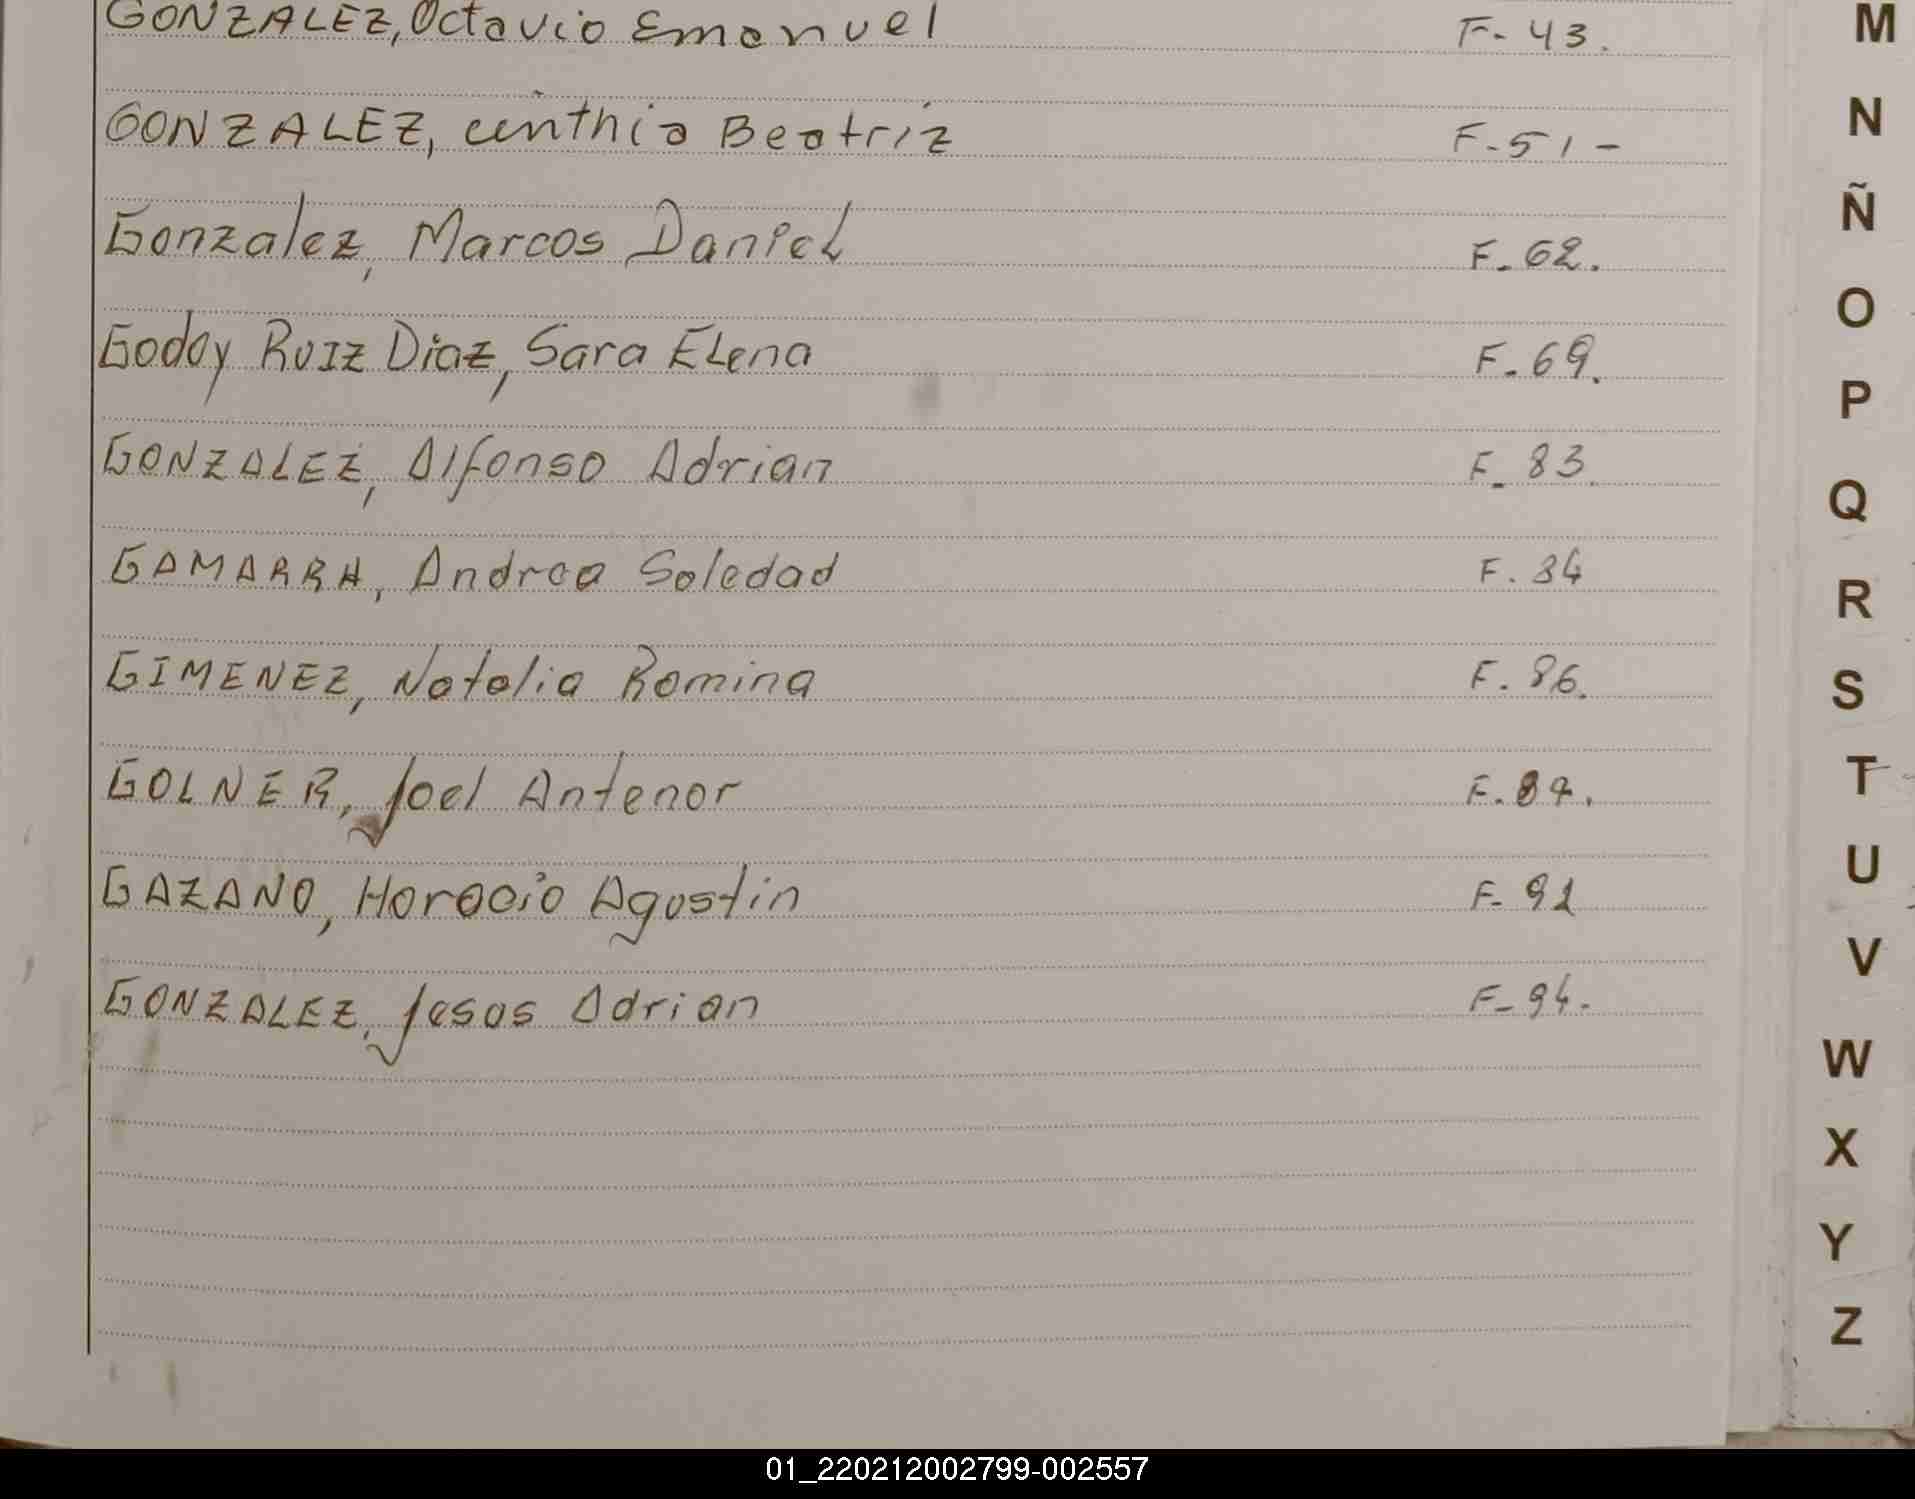 GONZALEZ, Octavio Emanuel F- 43.
GONZALEZ, Cinthia Beatriz F-51-
Gonzalez, Marcos Daniel F-62.
Godoy Ruiz Diaz, Sara Elena F-69.
GONZALEZ, Alfonso Adrian F-83.
GAMARRA, Andrea Soledad F.84
GIMENEZ, Natalia Romina F.86.
GOLNER, Joel Antenor
GAZANO, Horacio Agustin F-91
GONZALEZ, Jesus Adrian F-94.
M
N
Ñ
O
P
Q
R
S
T
U
V
W
X
Y
Z
01_220212002799-002557